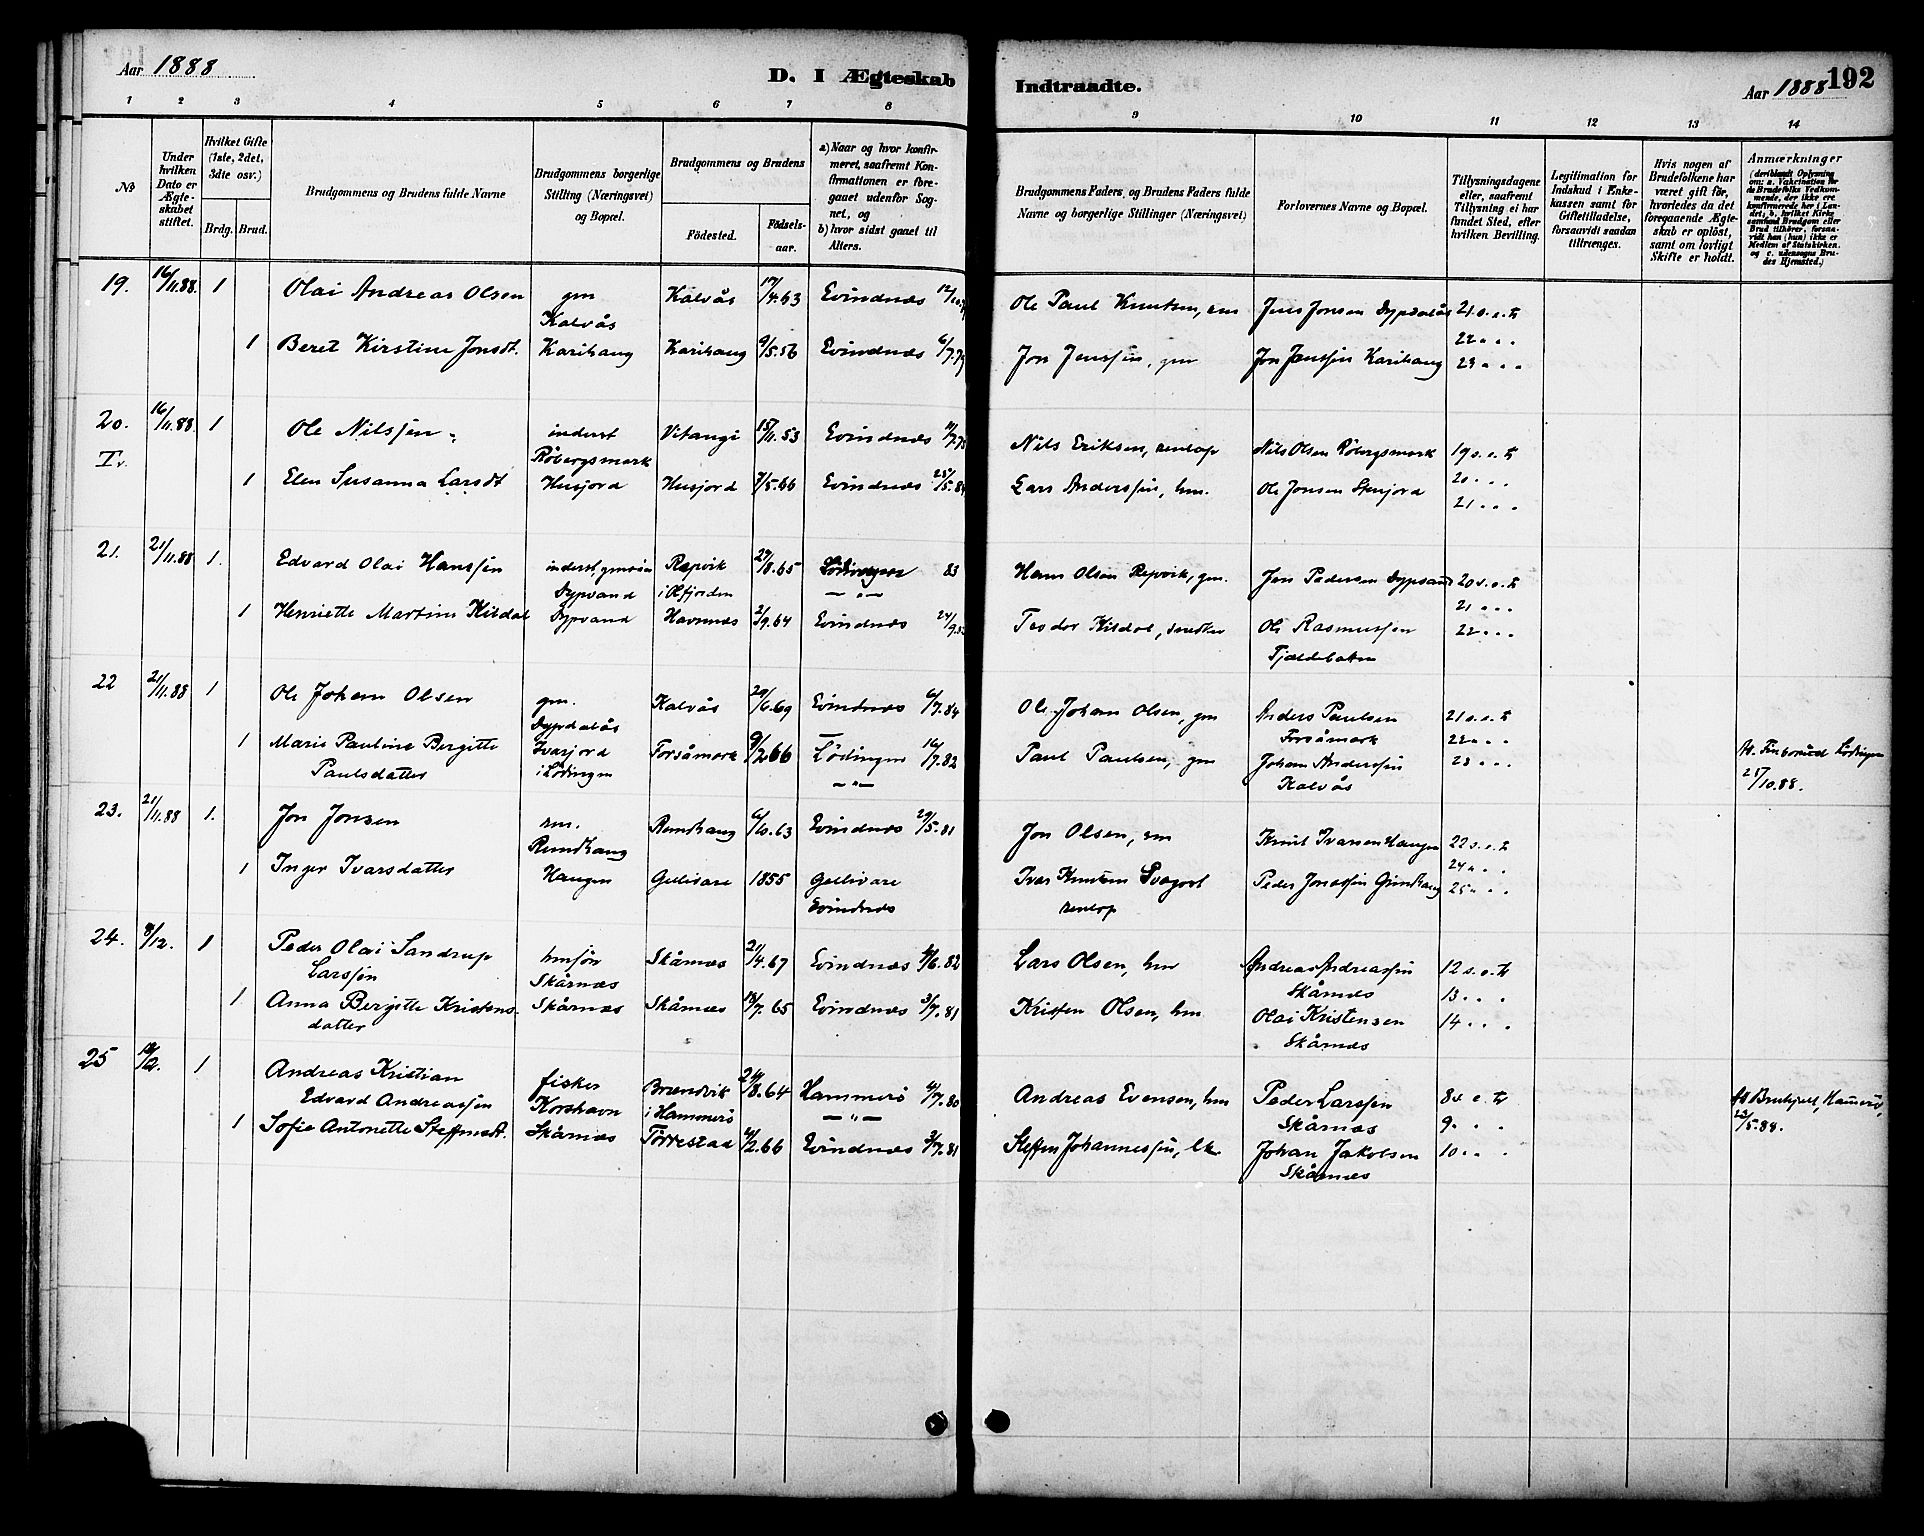 Aar 1888
D. I Ægteskab
Indtraadte.
Aar 1888
192
1 2 3 4 5 6 7 8 9 10 11 12 13 14
№
Under hvilken Dato er Ægteskabet stiftet.
Hvilket Gifte (1ste, 2det, 3die osv.)
Brdg. Brud.
Brudgommens og Brudens fulde Navne
Brudgommens borgerlige Stilling (Næringsvei) og Bopæl.
Brudgommens og Brudens
Födested.
Födselsaar.
a) Naar og hvor konfirmeret, saafremt Konfirmationen er foregaaet udenfor Sognet, og
b) hvor sidst gaaet til Alters.
Brudgommens Faders, og Brudens Faders fulde Navne og borgerlige Stillinger (Næringsvei)
Forlovernes Navne og Bopæl.
Tillysningsdagene eller, saafremt Tillysning ei har fundet Sted, efter hvilken Bevilling.
Legitimation for Indskud i Enkekassen samt for Giftetilladelse, forsaavidt saadan tiltrænges.
Hvis nogen af Brudefolkene har været gift før, hvorledes da det foregaaende Ægteskab er oplöst, samt om lovligt Skifte er holdt.
Anmærkninger (deriblandt Oplysning om: a. Vakcination for de Brudefolks Vedkommende, der ikke ere konfirmerede her i Landet; b. hvilket Kirkesamfund Brudgom eller Brud tilhører, forsaavidt han (hun) ikke er Medlem af Statskirken. og c. udensogns Brudes Hjemsted.)
19. 16/11.88. 1 Olai Andreas Olsen gm Kalvås Kalvås 17/4.63 Evindnæs Ole Paul Knutsen, sm Jens Jonsen Dypdalås 21 s. e. tr
22 " "
1 Beret Kirstine Jonsdt. Karihaug Karihaug 9/5.56 Evindnæs 6/7.79 Jon Jenssen, gm Jon Jenssen Karihaug 23 " "
20. 16/11.88. 1 Ole Nilssen inderst Röbergsmark Vitangi 15/11.53 Evindnæs Nils Eriksen, renlap Nils Olsen Röbergsmark 19 s. e. tr
Tv.
20 " "
1 Elen Susanna Larsdt Husjord Husjord 7/5.66 Evindnæs 25/5.84 Lars Anderssen, hm. Ole Jonsen Stenjord
21 " "
21. 21/11.88 1. Edvard Olai Hanssen inderst, Dypvand Repvik i Ofjorden 27/8.65 Lödingen 83 Hans Olsen Repvik, gm. Jens Pedersen Dypvand 20 s. e. tr
21 " "
1 Henriette Martine Kildal Dypvand Havnnæs 2/9.64 Evindnæs Teodor Kildal, Ole Rasmussen 22 " "
22 21/11.88 1 Ole Johan Olsen gm. Dypdalås Kalvås 29/6.69 Evindnæs 6/7.84 Ole Johan Olsen, gm Anders Paulsen Forsåmark 21 s. e. tr
22 " "
1 Marie Pauline Bergitte Paulsdatter Ivarjord i Lödingen Forsåmark 9/2 66 Lödingen 16/7.82 Paul Paulsen, gm Johan Anderssen Kalvås 23 " " Lödingen 25/10.88.
23. 21/11.88 1. Jon Jonsen sm. Rundhaug Rundhaug 6/6.63 Evindnæs 29/5.81 Jon Olsen, sm Knut Ivarsen Haugen 22 s. e. tr
24 " "
1 Inger Ivarsdatter Haugen Gellivare 1855 Gellivare Evindnæs Ivar Knutsen renlap Peder Jonassen Grundhaug 25 " "
24. 8/12. 1 Peder Olai Sandrup Larssen hmsön Skårnæs Skårnæs 21/4.67 Evindnæs 4/6.82 Lars Olsen, hm Andreas Andreassen Skårnæs 12 s. e. tr
13 " "
1 Anna Bergitte Kristensdatter Skårnæs Skårnæs 18/7.65 Evindnæs 3/7.81 Kristen Olsen, hm Olai Kristensen Skårnæs 14 " "
25 1 Andreas Kristian Edvard Andreassen fisker Korshavn Brændvik i Hammerö 24/8.64 Hammerö 4/7.80 Andreas Evensen, hm Peder Larssen Skårnæs 8 s. e. tr Hammerö,
9 " "
1 Sofie Antonette Steffensdt. Skårnæs Törrestad 4/2.66 Evindnæs 3/7.81 Steffen Johannessen, Johan Jakobsen Skårnæs 10 " "